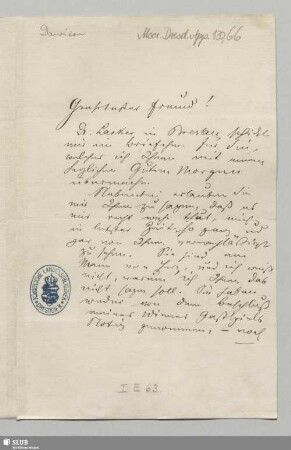 Dawison
Mscr. Dresd. App. 139, 66
Geehrtester Freund!
Dr. Lasker in Breslau, schickt
mir ein Briefchen für Sie,
welches ich Ihnen mit einem
herzlichen Guten Morgen
übermache.
Nebenbei erlauben Sie
mir Ihnen zu sagen, daß es
mir recht weh thut, mich
in letzter Zeit so ganz und
gar von Ihnen vernachlässigt
zu sehen. Sie sind ein
Mann von und ich weiß
nicht, warum ich Ihnen das
nicht sagen soll. Sie haben
weder von dem Beschluß
meines Wiener Gastspiels
Notiz genommen, – noch
I E 63
SLUB